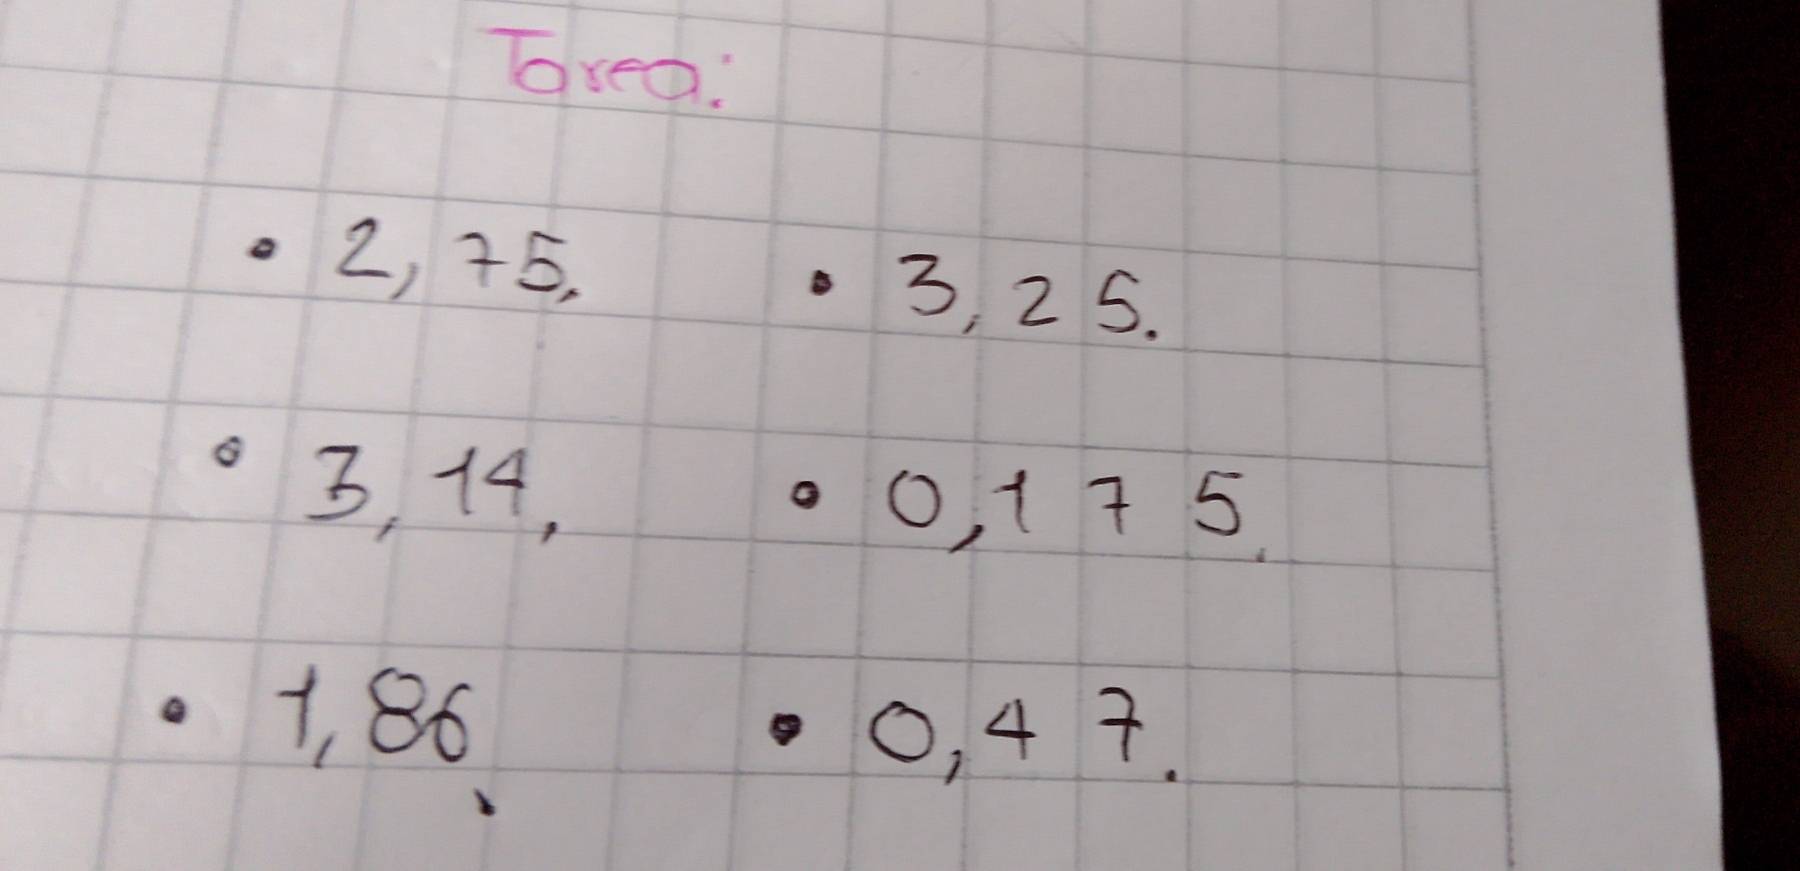 Tarea:
• 2,75. • 3,25.
• 3,14, • 0,175.
• 1,86. • 0,47.